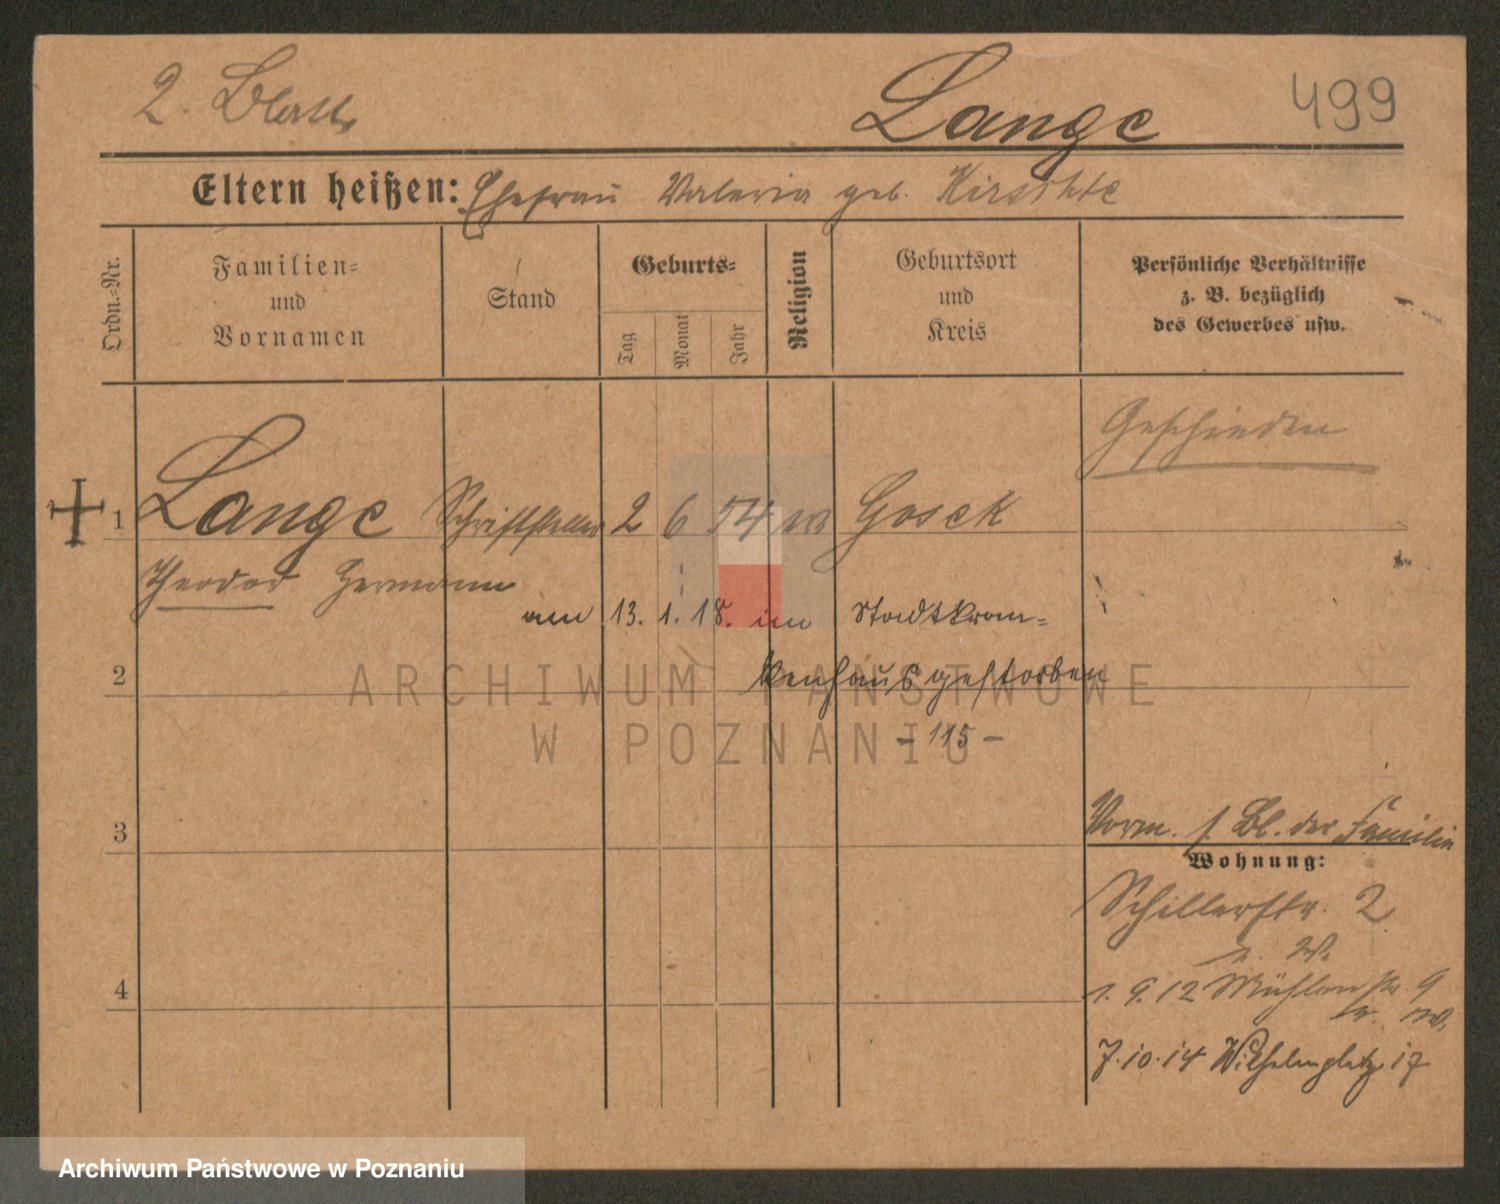 2. Blatt
Lange
499
Eltern heißen: Ehefrau Valeria geb. Kirschke
Ordn.-Nr.
Familien-
und
Vornamen
Stand
Geburts-
Tag
Monat
Jahr
Religion
Geburtsort
und
Kreis
Persönliche Verhältnisse
z. B. bezüglich
des Gewerbes usw.
Geschieden
1 Lange Schriftsteller 2 6 54 Gosek
Theodor Hermann
am 13. 1. 18. im Stadtkran-
2 kenhaus gestorben
- 115 -
ARCHIWUM PAŃSTWOWE
W POZNANIU
3
Vorm. s. Bl. der Familie
Wohnung:
Schillerstr. 2
4
1. 9. 12 Mühlenstr. 9
7. 10. 14 Wilhelmplatz 17
Archiwum Państwowe w Poznaniu